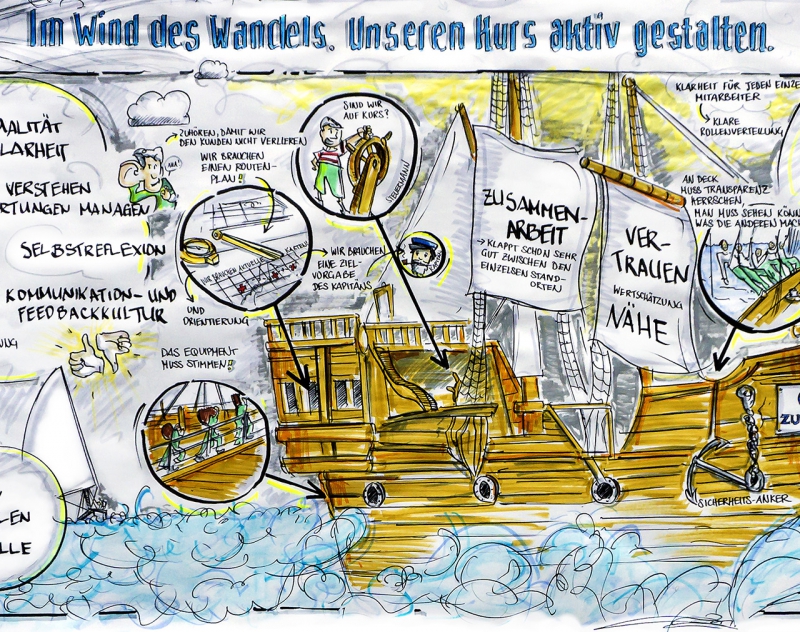 Im Wind des Wandels. Unseren Kurs aktiv gestalten.
ALITÄT
LARHEIT
VERSTEHEN
RTUNGEN MANAGEN
SELBSTREFLEXION
KOMMUNIKATION- UND
FEEDBACKKULTUR
UNG
LEN
LLE
→ ZUHÖREN, DAMIT WIR
DEN KUNDEN NICHT VERLIEREN
WIR BRAUCHEN
EINEN ROUTEN-
PLAN!
WIR BRAUCHEN AKTUELLE KARTEN
UND
ORIENTIERUNG
→ WIR BRAUCHEN
EINE ZIEL-
VORGABE
DES KAPITÄNS
DAS EQUIPMENT
MUSS STIMMEN!!
SIND WIR
AUF KURS?
STEUERMANN
ZUSAMMEN-
ARBEIT
→ KLAPPT SCHON SEHR
GUT ZWISCHEN DEN
EINZELNEN STAND-
ORTEN
VER-
TRAUEN
WERTSCHÄTZUNG
NÄHE
KLARHEIT FÜR JEDEN EINZE
MITARBEITER
→ KLARE
ROLLENVERTEILUNG
AN DECK
MUSS TRANSPARENZ
HERRSCHEN,
MAN MUSS SEHEN KÖNN
WAS DIE ANDEREN MACH
ZU
SICHERHEITS-ANKER